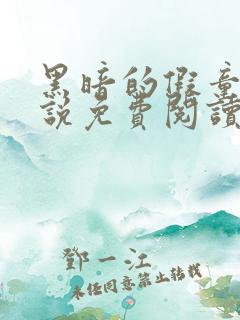 黑暗的假童
說免費閱讀
鄧一江
未经同意禁止转载